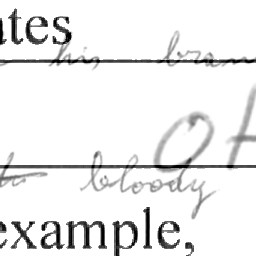 ates
his bran
of
the bloody
example,